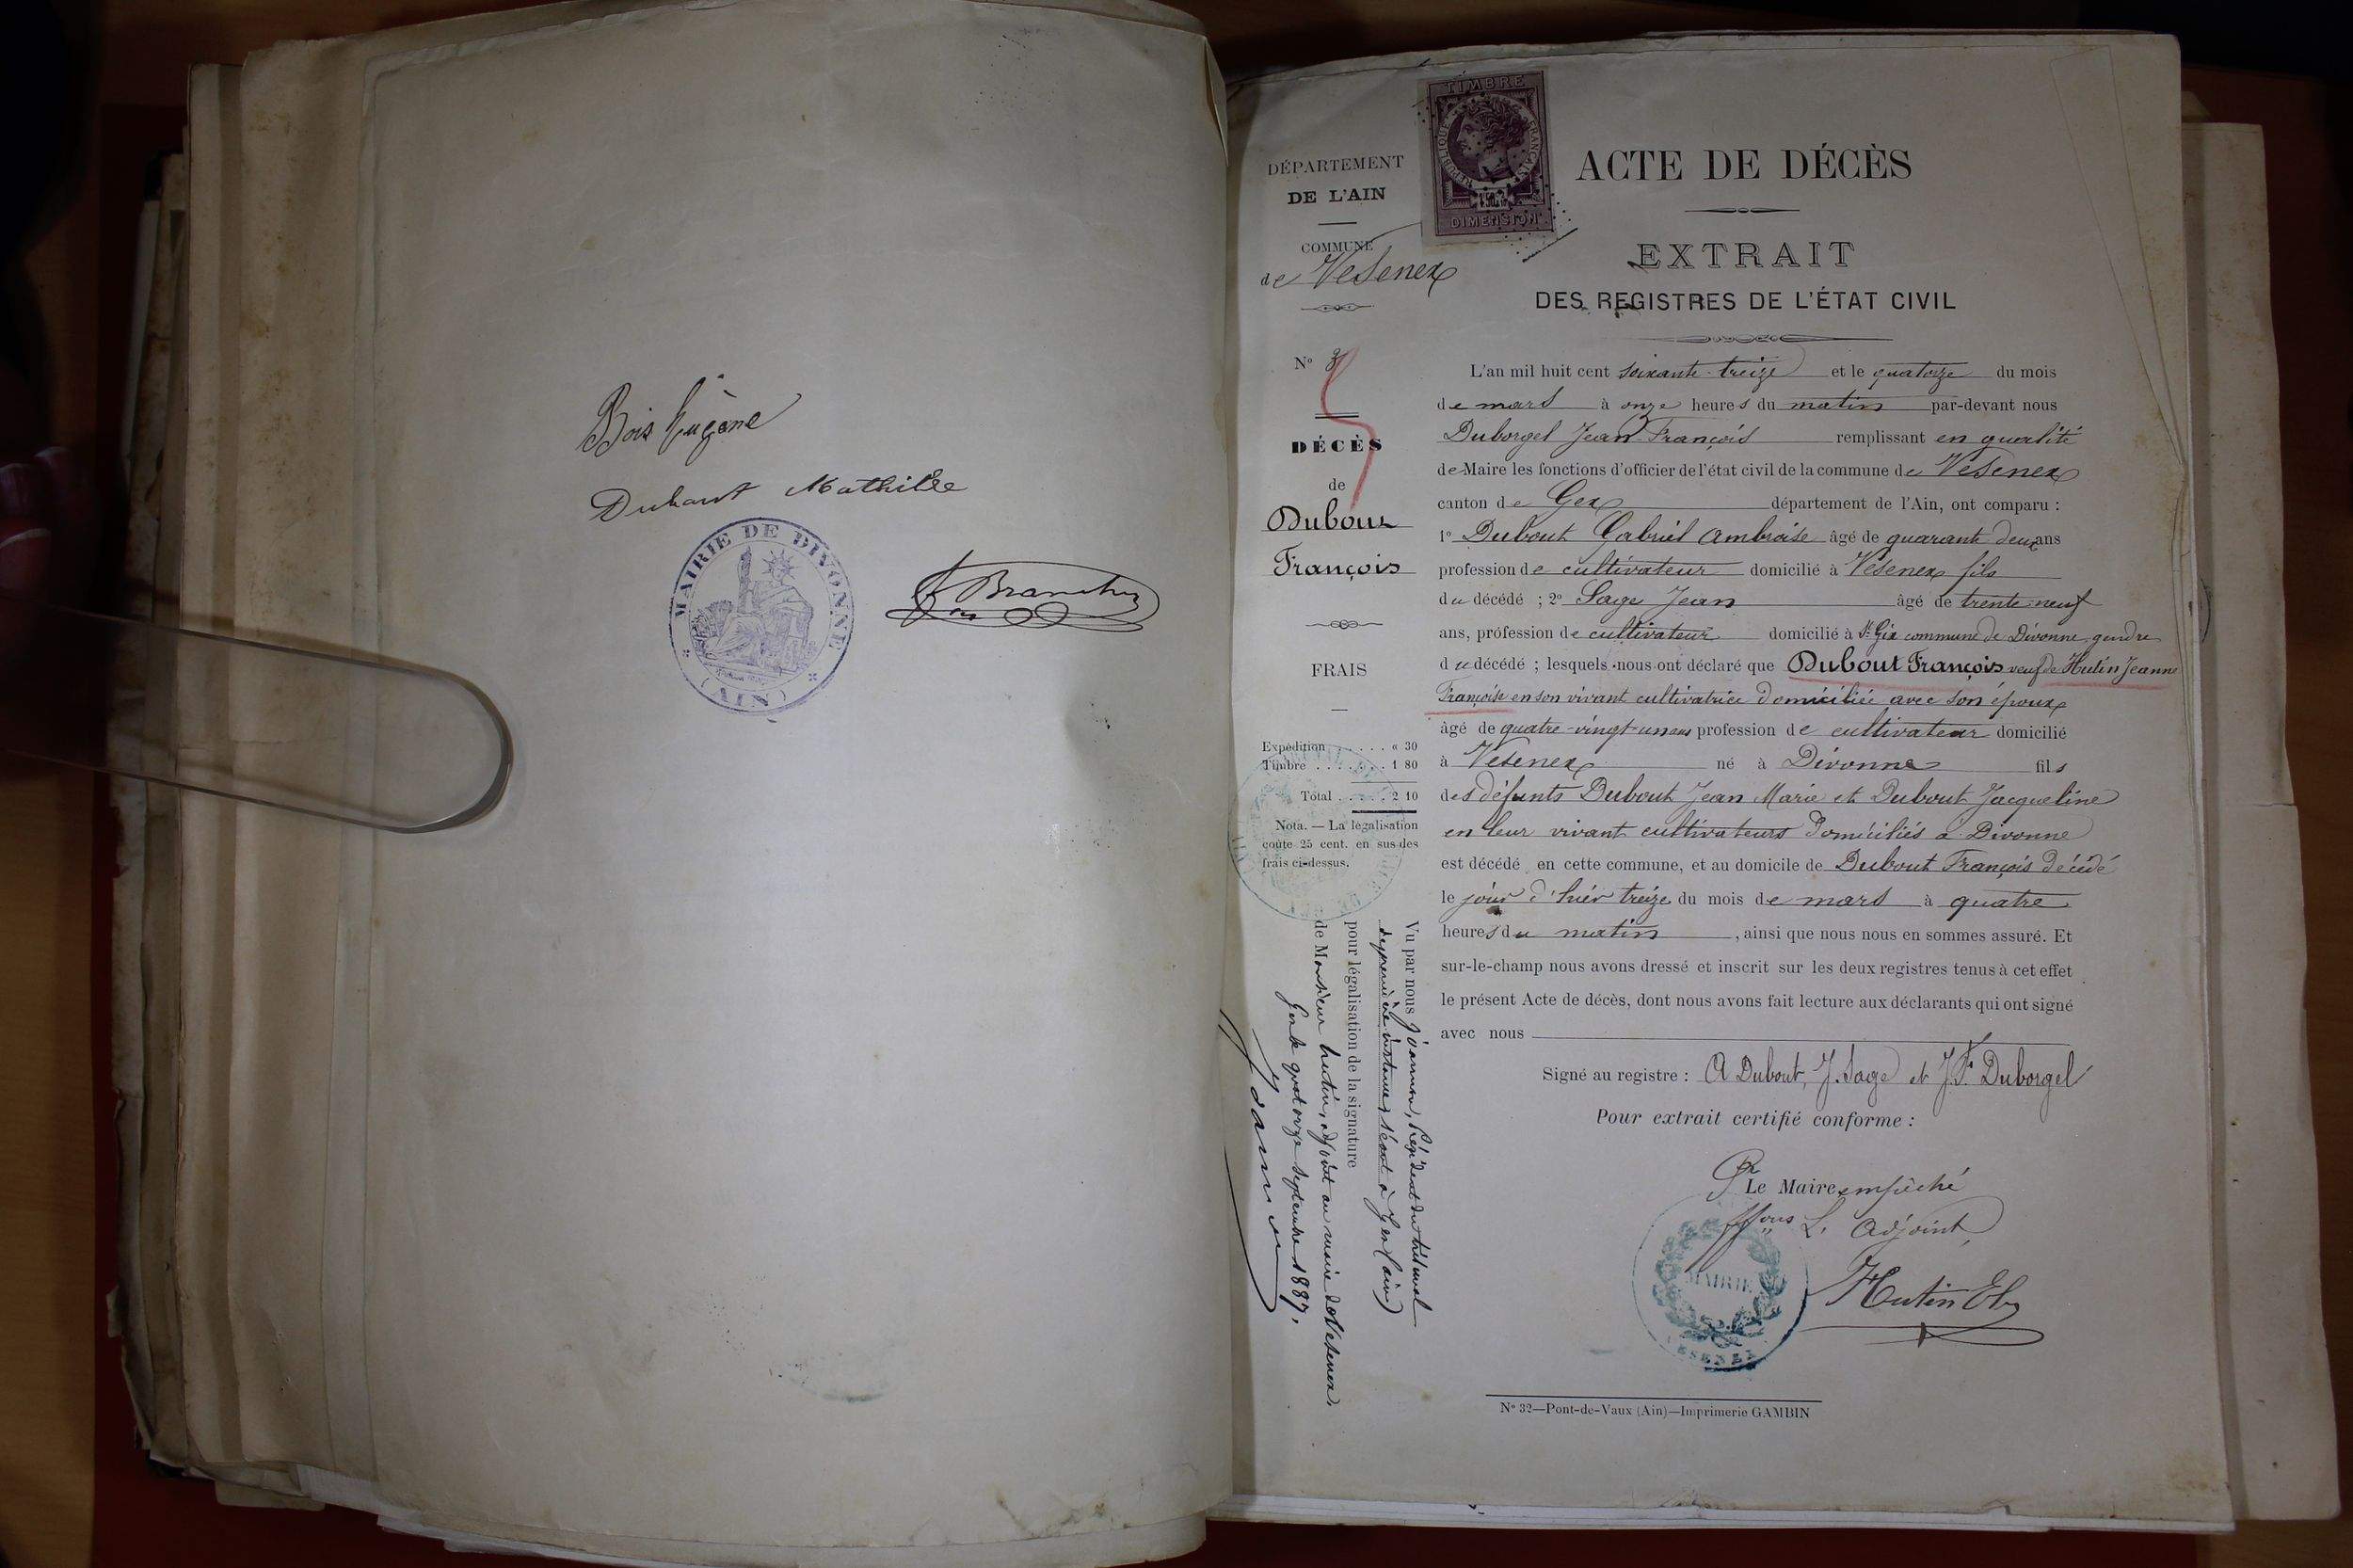 Bois Eugène
Dubout Mathilde
MAIRIE DE DIVONNE
(AIN)
DÉPARTEMENT
DE L'AIN
COMMUNE
de Vesenex
N° 3
DÉCÈS
de
Dubout
François
FRAIS
Expédition . . . . . « 30
Timbre . . . . . . . 1 80
Total . . . . . 2 10
Nota. — La légalisation
coûte 25 cent. en sus des
frais ci-dessus.
Vu par nous Joannon, Président du tribunal
de première instance séant à Gex (ain)
pour légalisation de la signature
de Monsieur hutin, adjoint au maire de Vesenex
Gex le quatorze septembre 1887.
Joannon
TIMBRE
RÉPUBLIQUE FRANÇAISE
DIMENSION
ACTE DE DÉCÈS
EXTRAIT
DES REGISTRES DE L'ÉTAT CIVIL
L'an mil huit cent soixante-treize et le quatorze du mois
de mars à onze heures du matin par-devant nous
Duborgel Jean François remplissant en qualité
de Maire les fonctions d'officier de l'état civil de la commune de Vesenex
canton de Gex département de l'Ain, ont comparu :
1° Dubout Gabriel Ambroise âgé de quarante deux ans
profession de cultivateur domicilié à Vesenex fils
du décédé ; 2° Sage Jean âgé de trente-neuf
ans, profession de cultivateur domicilié à St Gix commune de Divonne, gendre
du décédé ; lesquels nous ont déclaré que Dubout François veuf de Hutin Jeanne
Françoise en son vivant cultivatrice domiciliée avec son époux
âgé de quatre-vingt-un ans profession de cultivateur domicilié
à Vesenex né à Divonne fils
des défunts Dubout Jean Marie et Dubout Jacqueline
en leur vivant cultivateurs domiciliés à Divonne
est décédé en cette commune, et au domicile de Dubout François décédé
le jour d'hier treize du mois de mars à quatre
heures du matin , ainsi que nous nous en sommes assuré. Et
sur-le-champ nous avons dressé et inscrit sur les deux registres tenus à cet effet
le présent Acte de décès, dont nous avons fait lecture aux déclarants qui ont signé
avec nous
Signé au registre : A Dubout, J. Sage et J. F. Duborgel
Pour extrait certifié conforme :
Pr Le Maire empêché
L'adjoint
Hutin
MAIRIE
VESENEX
N° 32—Pont-de-Vaux (Ain)—Imprimerie GAMBIN